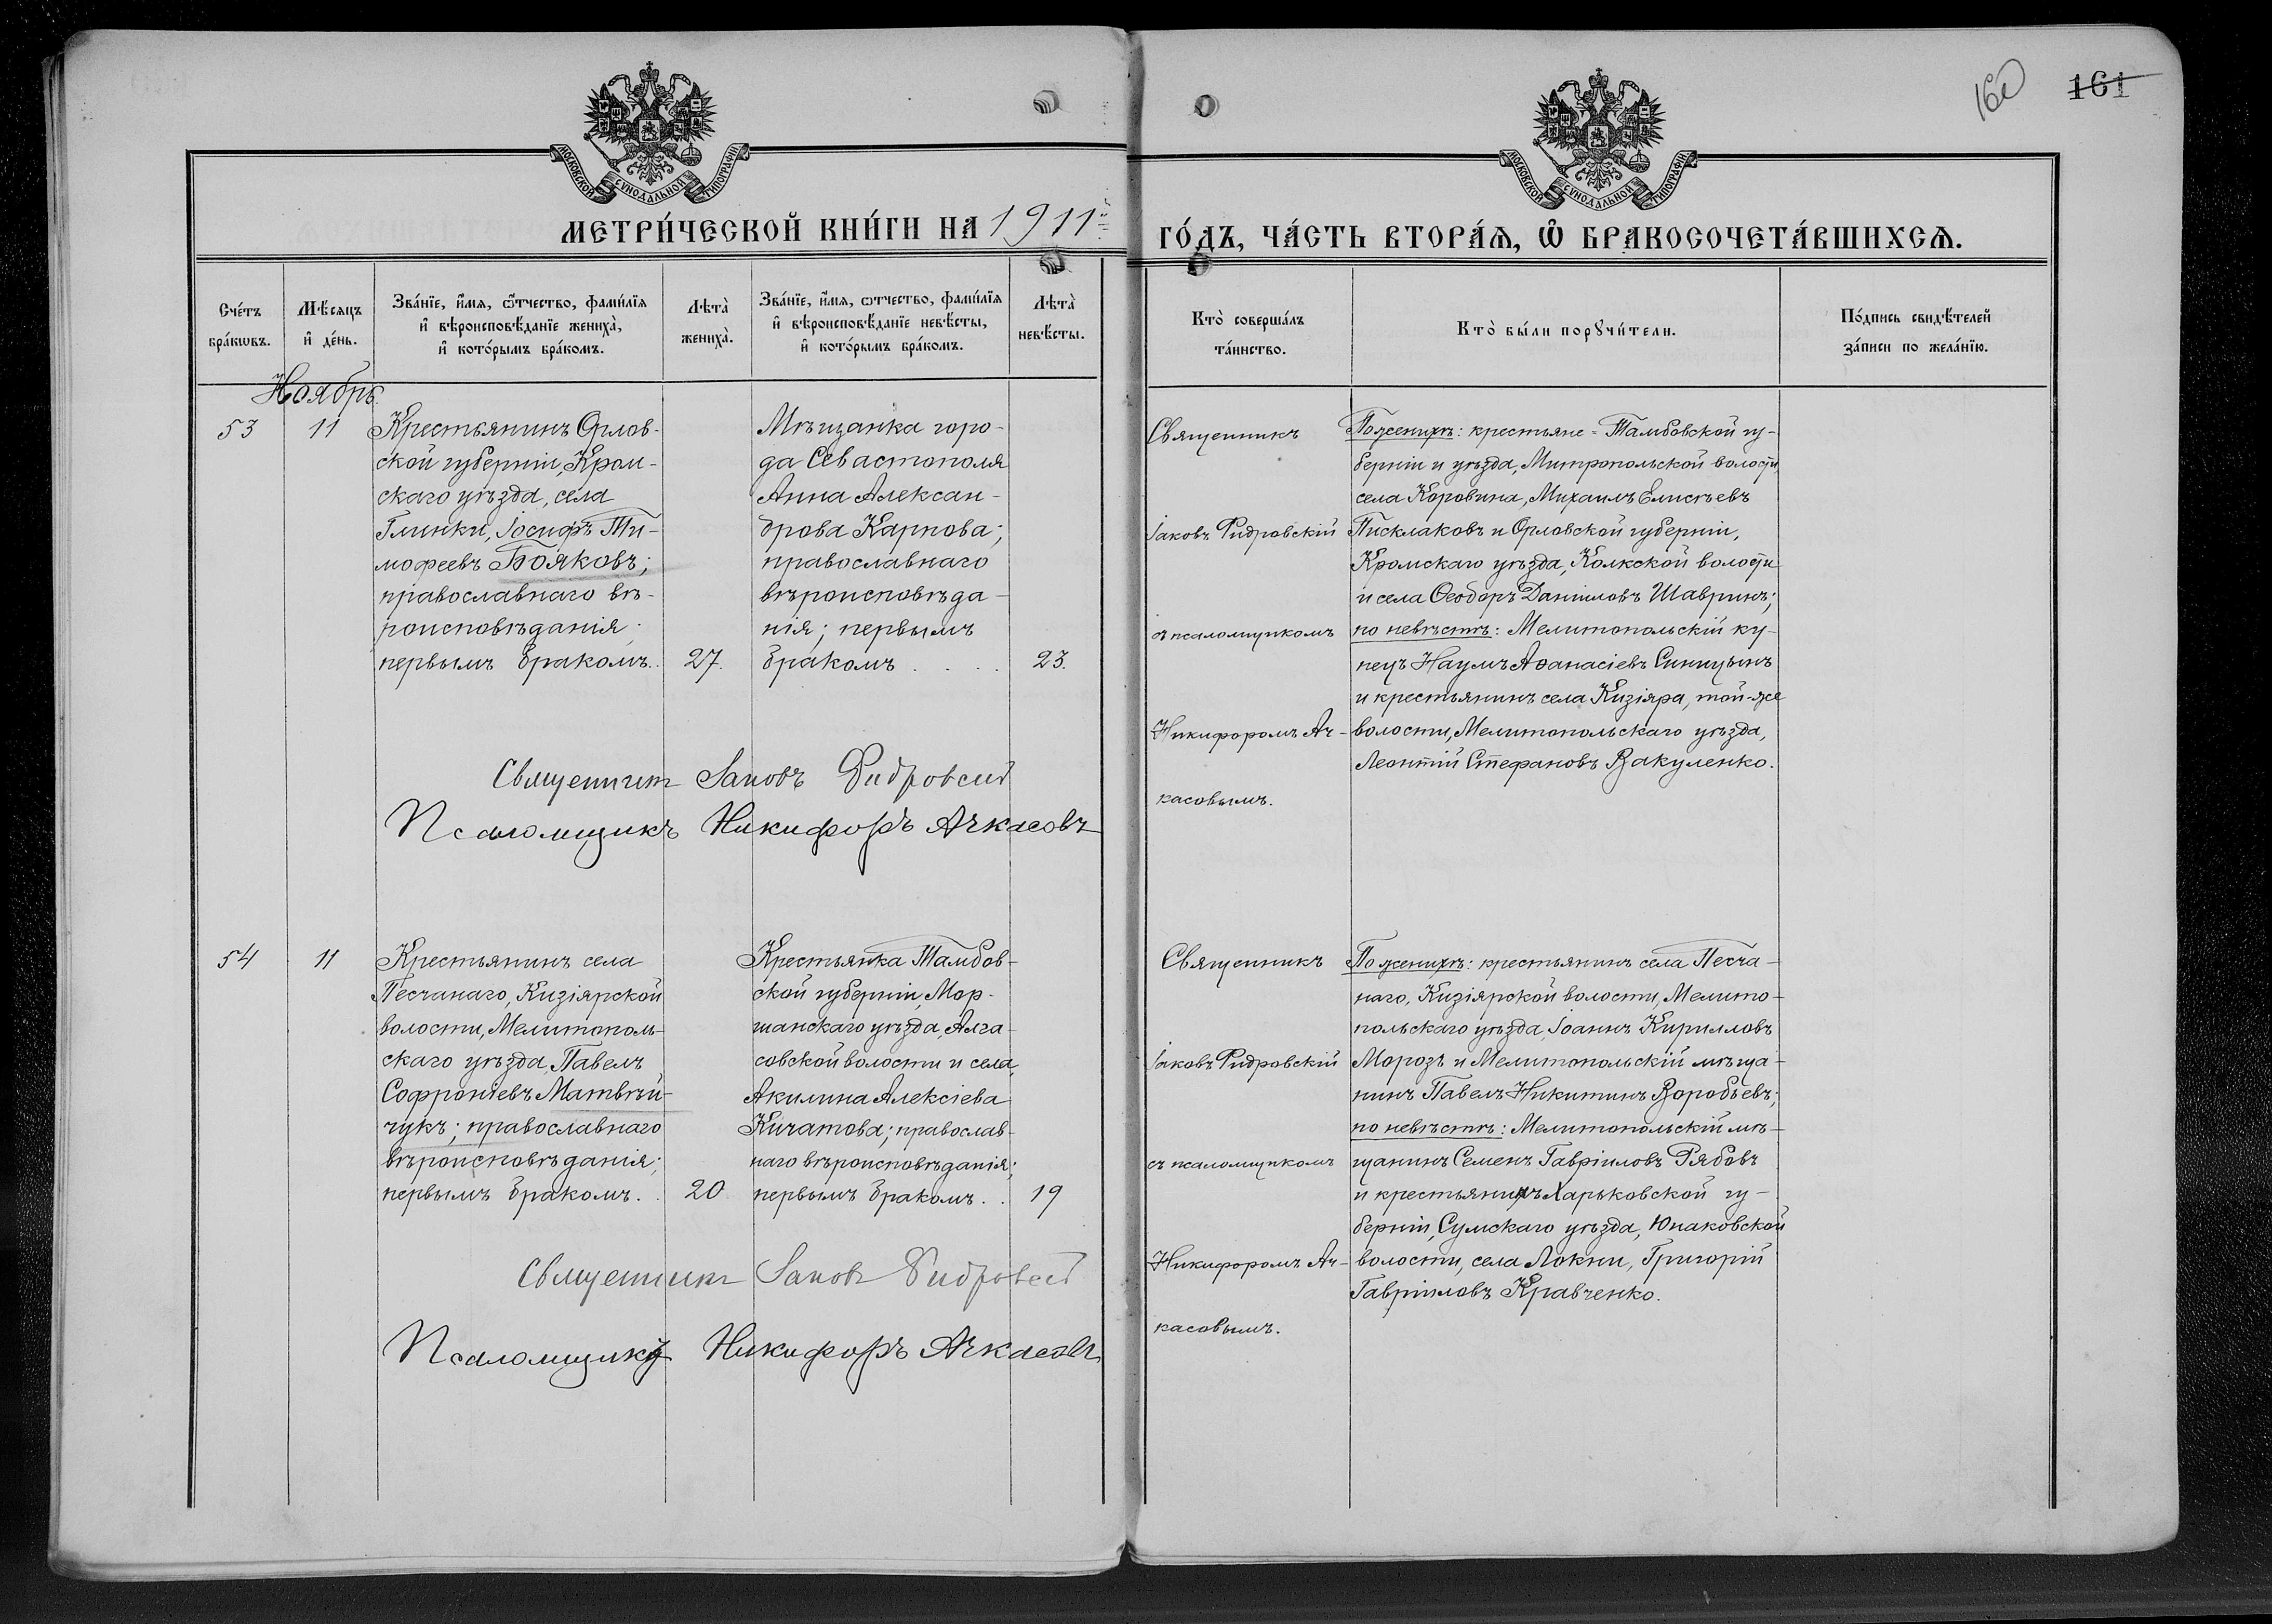 160 161
МОСКОВСКОЙ СѴНОДАЛЬНОЙ ТИПОГРАФІИ
МОСКОВСКОЙ СѴНОДАЛЬНОЙ ТИПОГРАФІИ
МЕТРИ́ЧЕСКОЙ КНИ́ГИ НА 1911й
ГО́ДЪ, ЧА́СТЬ ВТОРА́Ѧ, Ѽ БРАКОСОЧЕТА́ВШИХСѦ.
Сче́тъ
бра́кѡвъ.
Мѣ́сяцъ
и҆ де́нь.
Зва́нїе, и҆́мѧ, ѻ҆́тчество, фами́лїѧ
и҆ вѣроисповѣ́данїе жениха̀,
и҆ кото́рымъ бра́комъ.
Лѣта̀
жениха̀.
Зва́нїе, и҆́мѧ, ѻ҆́тчество, фами́лїѧ
и҆ вѣроисповѣ́данїе невѣ́сты,
и҆ кото́рымъ бра́комъ.
Лѣта̀
невѣ́сты.
Кто̀ соверша́лъ
та́инство.
Кто̀ бы́ли порꙋчи́тели.
По́дпись свидѣ́телей
за́писи по жела́нїю.
Ноябрь.
53
11
Крестьянинъ Орлов-
ской губерніи, Кром-
скаго уѣзда, села
Глинки, Іосифъ Ти-
мофеевъ Бояковъ;
православнаго вѣ-
роисповѣданія;
первымъ бракомъ.
27.
Мѣщанка горо-
да Севастополя
Анна Алексан-
дрова Карпова;
православнаго
вѣроисповѣда-
нія; первымъ
бракомъ . . . .
23.
Священникъ
Іаковъ Фидровскій
съ псаломщикомъ
Никифоромъ Ач-
касовымъ.
По женихѣ: крестьяне - Тамбовской гу-
берніи и уѣзда, Митропольской волости
села Коровина, Михаилъ Елисѣевъ
Писклаковъ и Орловской губерніи,
Кромскаго уѣзда, Колкской волости
и села Ѳеодоръ Даніиловъ Шавринъ;
по невѣстѣ: Мелитопольскій ку-
пецъ Наумъ Аѳанасіевъ Синицынъ
и крестьянинъ села Кизіяра, той-же
волости, Мелитопольскаго уѣзда,
Леонтій Стефановъ Вакуленко.
Священникъ Іаковъ Фидровскій
Псаломщикъ Никифоръ Ачкасовъ
54
11
Крестьянинъ села
Песчанаго, Кизіярской
волости, Мелитополь-
скаго уѣзда, Павелъ
Софроніевъ Матвѣй-
чукъ; православнаго
вѣроисповѣданія;
первымъ бракомъ. .
20
Крестьянка Тамбов-
ской губерніи, Мор-
шанскаго уѣзда, Алга-
совской волости и села,
Акилина Алексіева
Кичатова; православ-
наго вѣроисповѣданія;
первымъ бракомъ. .
19
Священникъ
Іаковъ Фидровскій
съ псаломщикомъ
Никифоромъ Ач-
касовымъ.
По женихѣ: крестьянинъ села Песча-
наго, Кизіярской волости, Мелито-
польскаго уѣзда, Іоаннъ Кирилловъ
Морозъ и Мелитопольскій мѣща-
нинъ Павелъ Никитинъ Воробьевъ;
по невѣстѣ: Мелитопольскій мѣ-
щанинъ Семенъ Гавріиловъ Рябовъ
и крестьянинъ Харьковской гу-
берніи, Сумскаго уѣзда, Юнаковской
волости, села Локни, Григорій
Гавріиловъ Кравченко.
Священникъ Іаковъ Фидровскій
Псаломщикъ Никифоръ Ачкасовъ